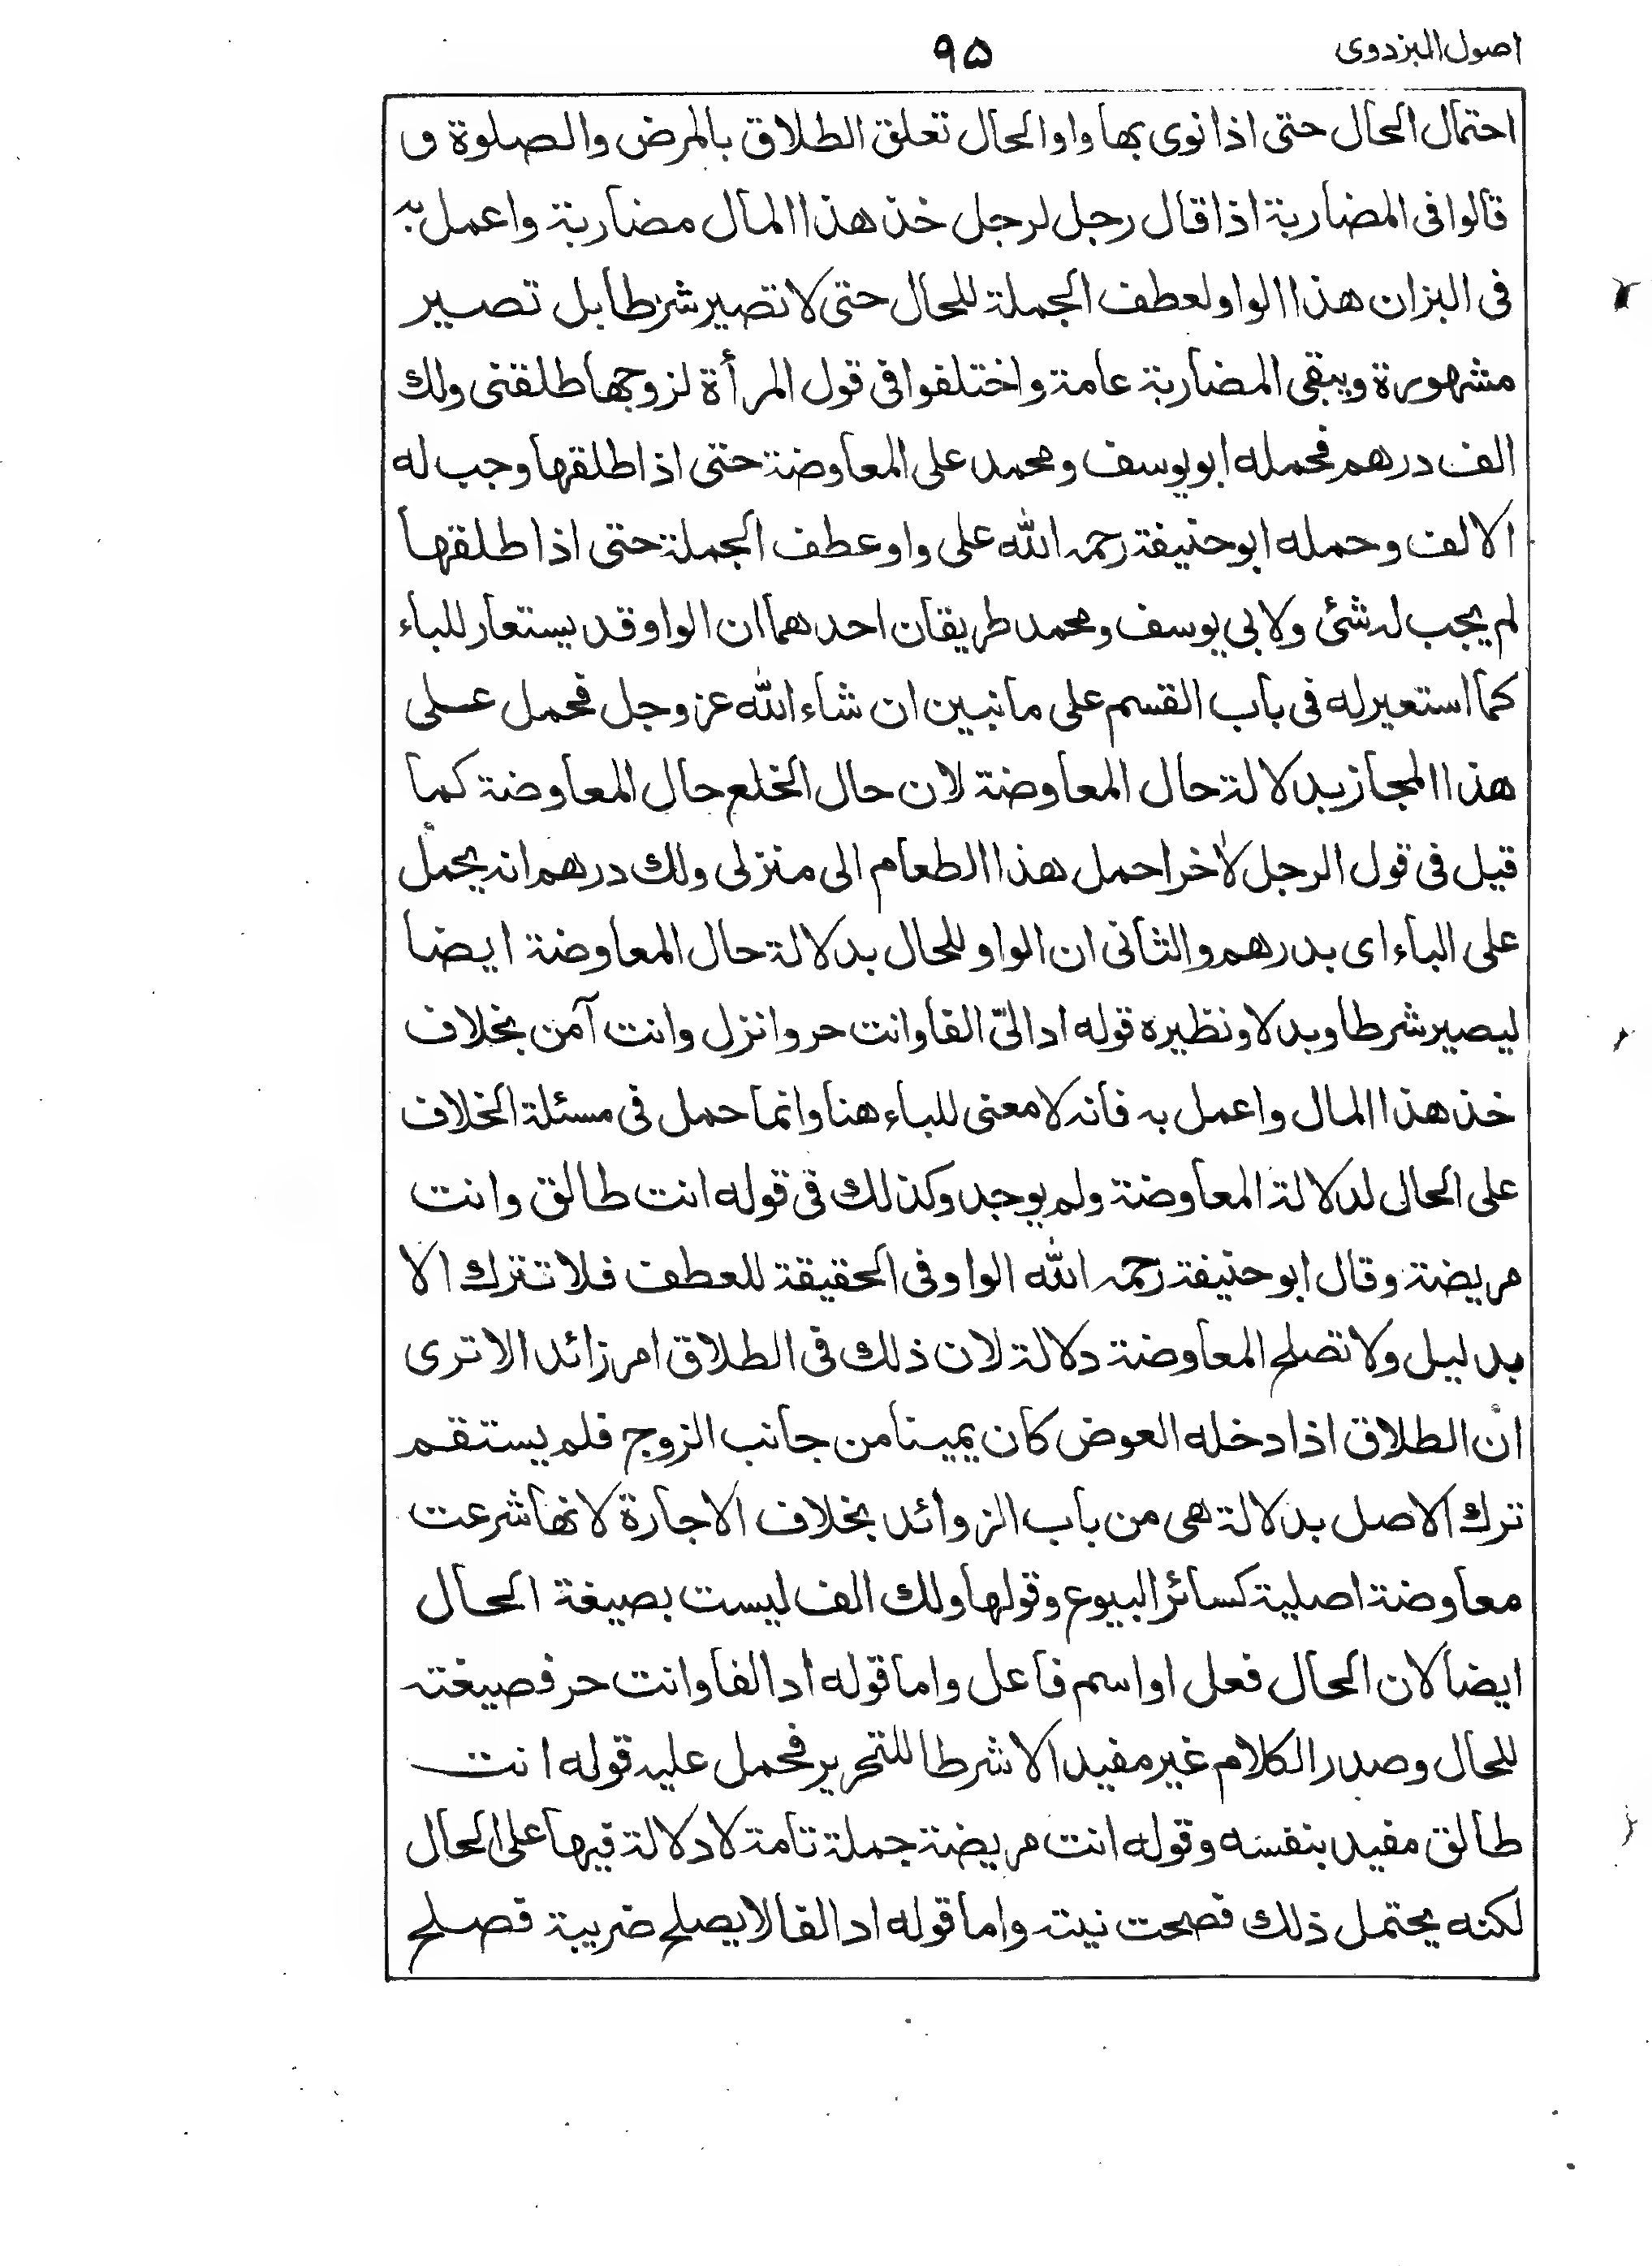 اصول البزدوى
۹۵
احتمال الحال حتى اذا نوى بها واو الحال تعلق الطلاق بالمرض والصلوة و
قالوا فى المضاربة اذا قال رجل لرجل خذ هذا المال مضاربة واعمل به
فى البزان هذا الواو لعطف الجملة للحال حتى لا تصير شرطا بل تصير
مشهورة ويبقى المضاربة عامة واختلفوا فى قول المرأة لزوجها طلقنى ولك
الف درهم فحمله ابو يوسف ومحمد على المعاوضة حتى اذا طلقها وجب له
الالف وحمله ابو حنيفة رحمه الله على واو عطف الجملة حتى اذا طلقها
لم يجب له شئ ولابي يوسف ومحمد طريقان احدهما ان الواو قد يستعار للباء
كما استعير له فى باب القسم على ما نبين ان شاء الله عز وجل فحمل على
هذا المجاز بدلالة حال المعاوضة لان حال الخلع حال المعاوضة كما
قيل فى قول الرجل لأخر احمل هذا الطعام الى منزلى ولك درهم انه يحمل
على الباء اى بدرهم والثانى ان الواو للحال بدلالة حال المعاوضة ايضا
ليصير شرطا وبدلا ونظيره قوله اد الىّ الفا وانت حر وانزل وانت آمن بخلاف
خذ هذا المال واعمل به فانه لا معنى للباء هنا وانما حمل فى مسئلة الخلاف
على الحال لدلالة المعاوضة ولم يوجد وكذلك فى قوله انت طالق وانت
مريضة وقال ابو حنيفة رحمه الله الواو فى الحقيقة للعطف فلا تترك الا
بدليل ولا تصلح المعاوضة دلالة لان ذلك فى الطلاق امر زائد الا ترى
انّ الطلاق اذا دخله العوض كان يمينا من جانب الزوج فلم يستقم
ترك الاصل بدلالة هى من باب الزوائد بخلاف الاجارة لانها شرعت
معاوضة اصلية كسائر البيوع وقولها ولك الف ليست بصيغة الحال
ايضا لان الحال فعل او اسم فاعل واما قوله اد الفا وانت حر فصيغته
للحال وصدر الكلام غير مفيد الا شرطا للتحرير فحمل عليه قوله انت
طالق مفيد بنفسه وقوله انت مريضة جملة تامة لا دلالة فيها على الحال
لكنه يحتمل ذلك فصحت نيته واما قوله اد الفا لا يصلح ضريبة فصلح